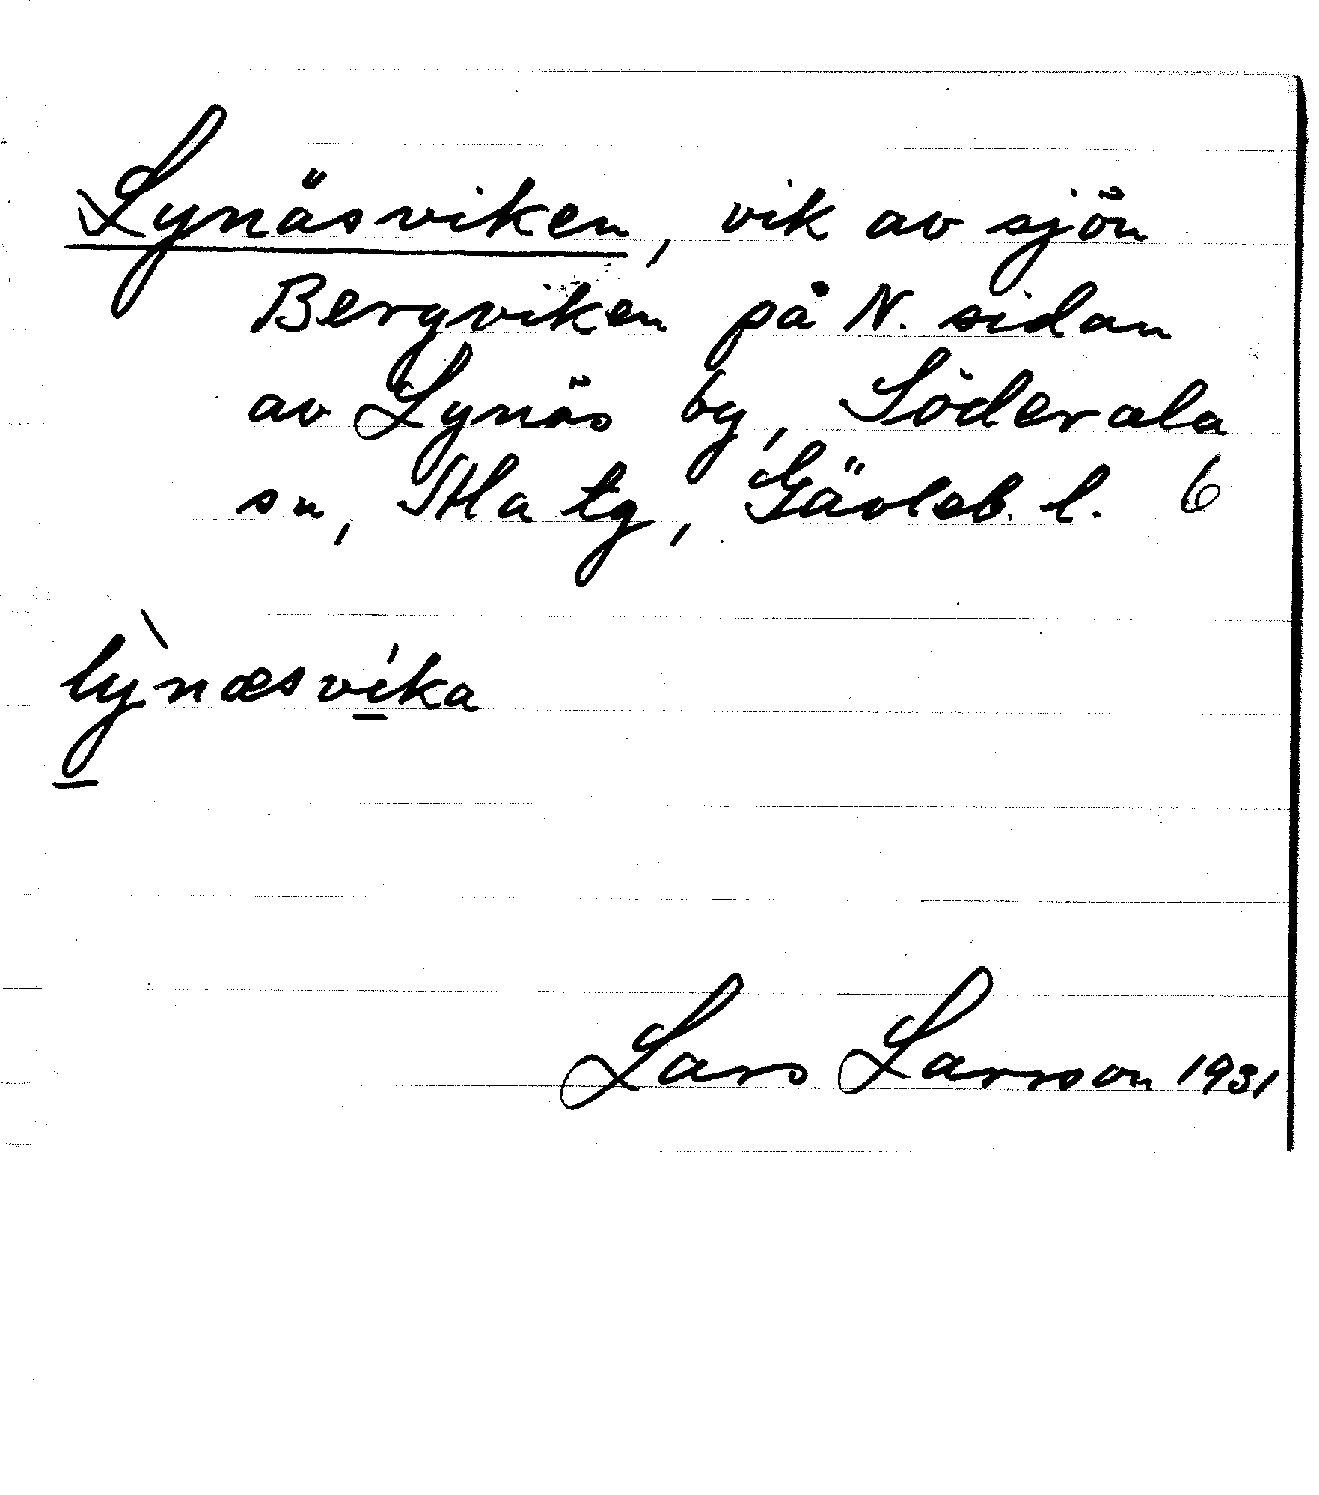 Lynäsviken, vik av sjön
Bergviken på N. sidan
av Lynäs by, Söderala
sn, Ala tg, Gävleb. l. 6
lỳnæsvíka
Lars Larsson 1931